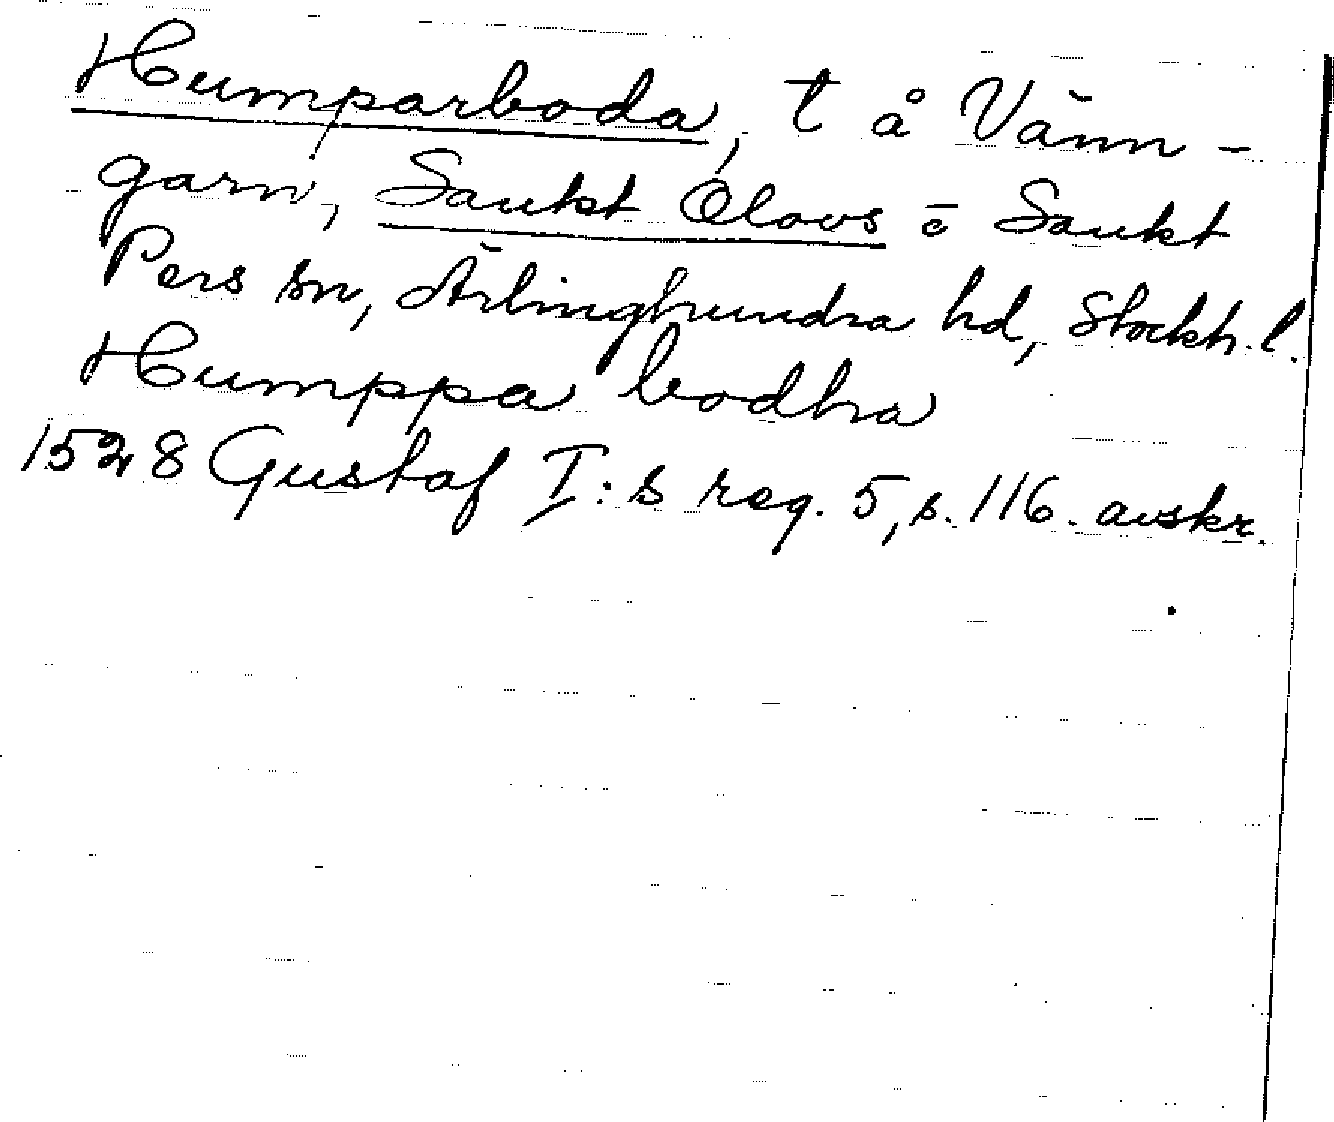 Humparboda, t å Vänn-
garn, Sankt Olovs ē Sankt
Pers sn, Ärlinghundra hd, Stockh. l.
Humppa bodha
1528 Gustaf I:s reg. 5, s. 116. avskr.